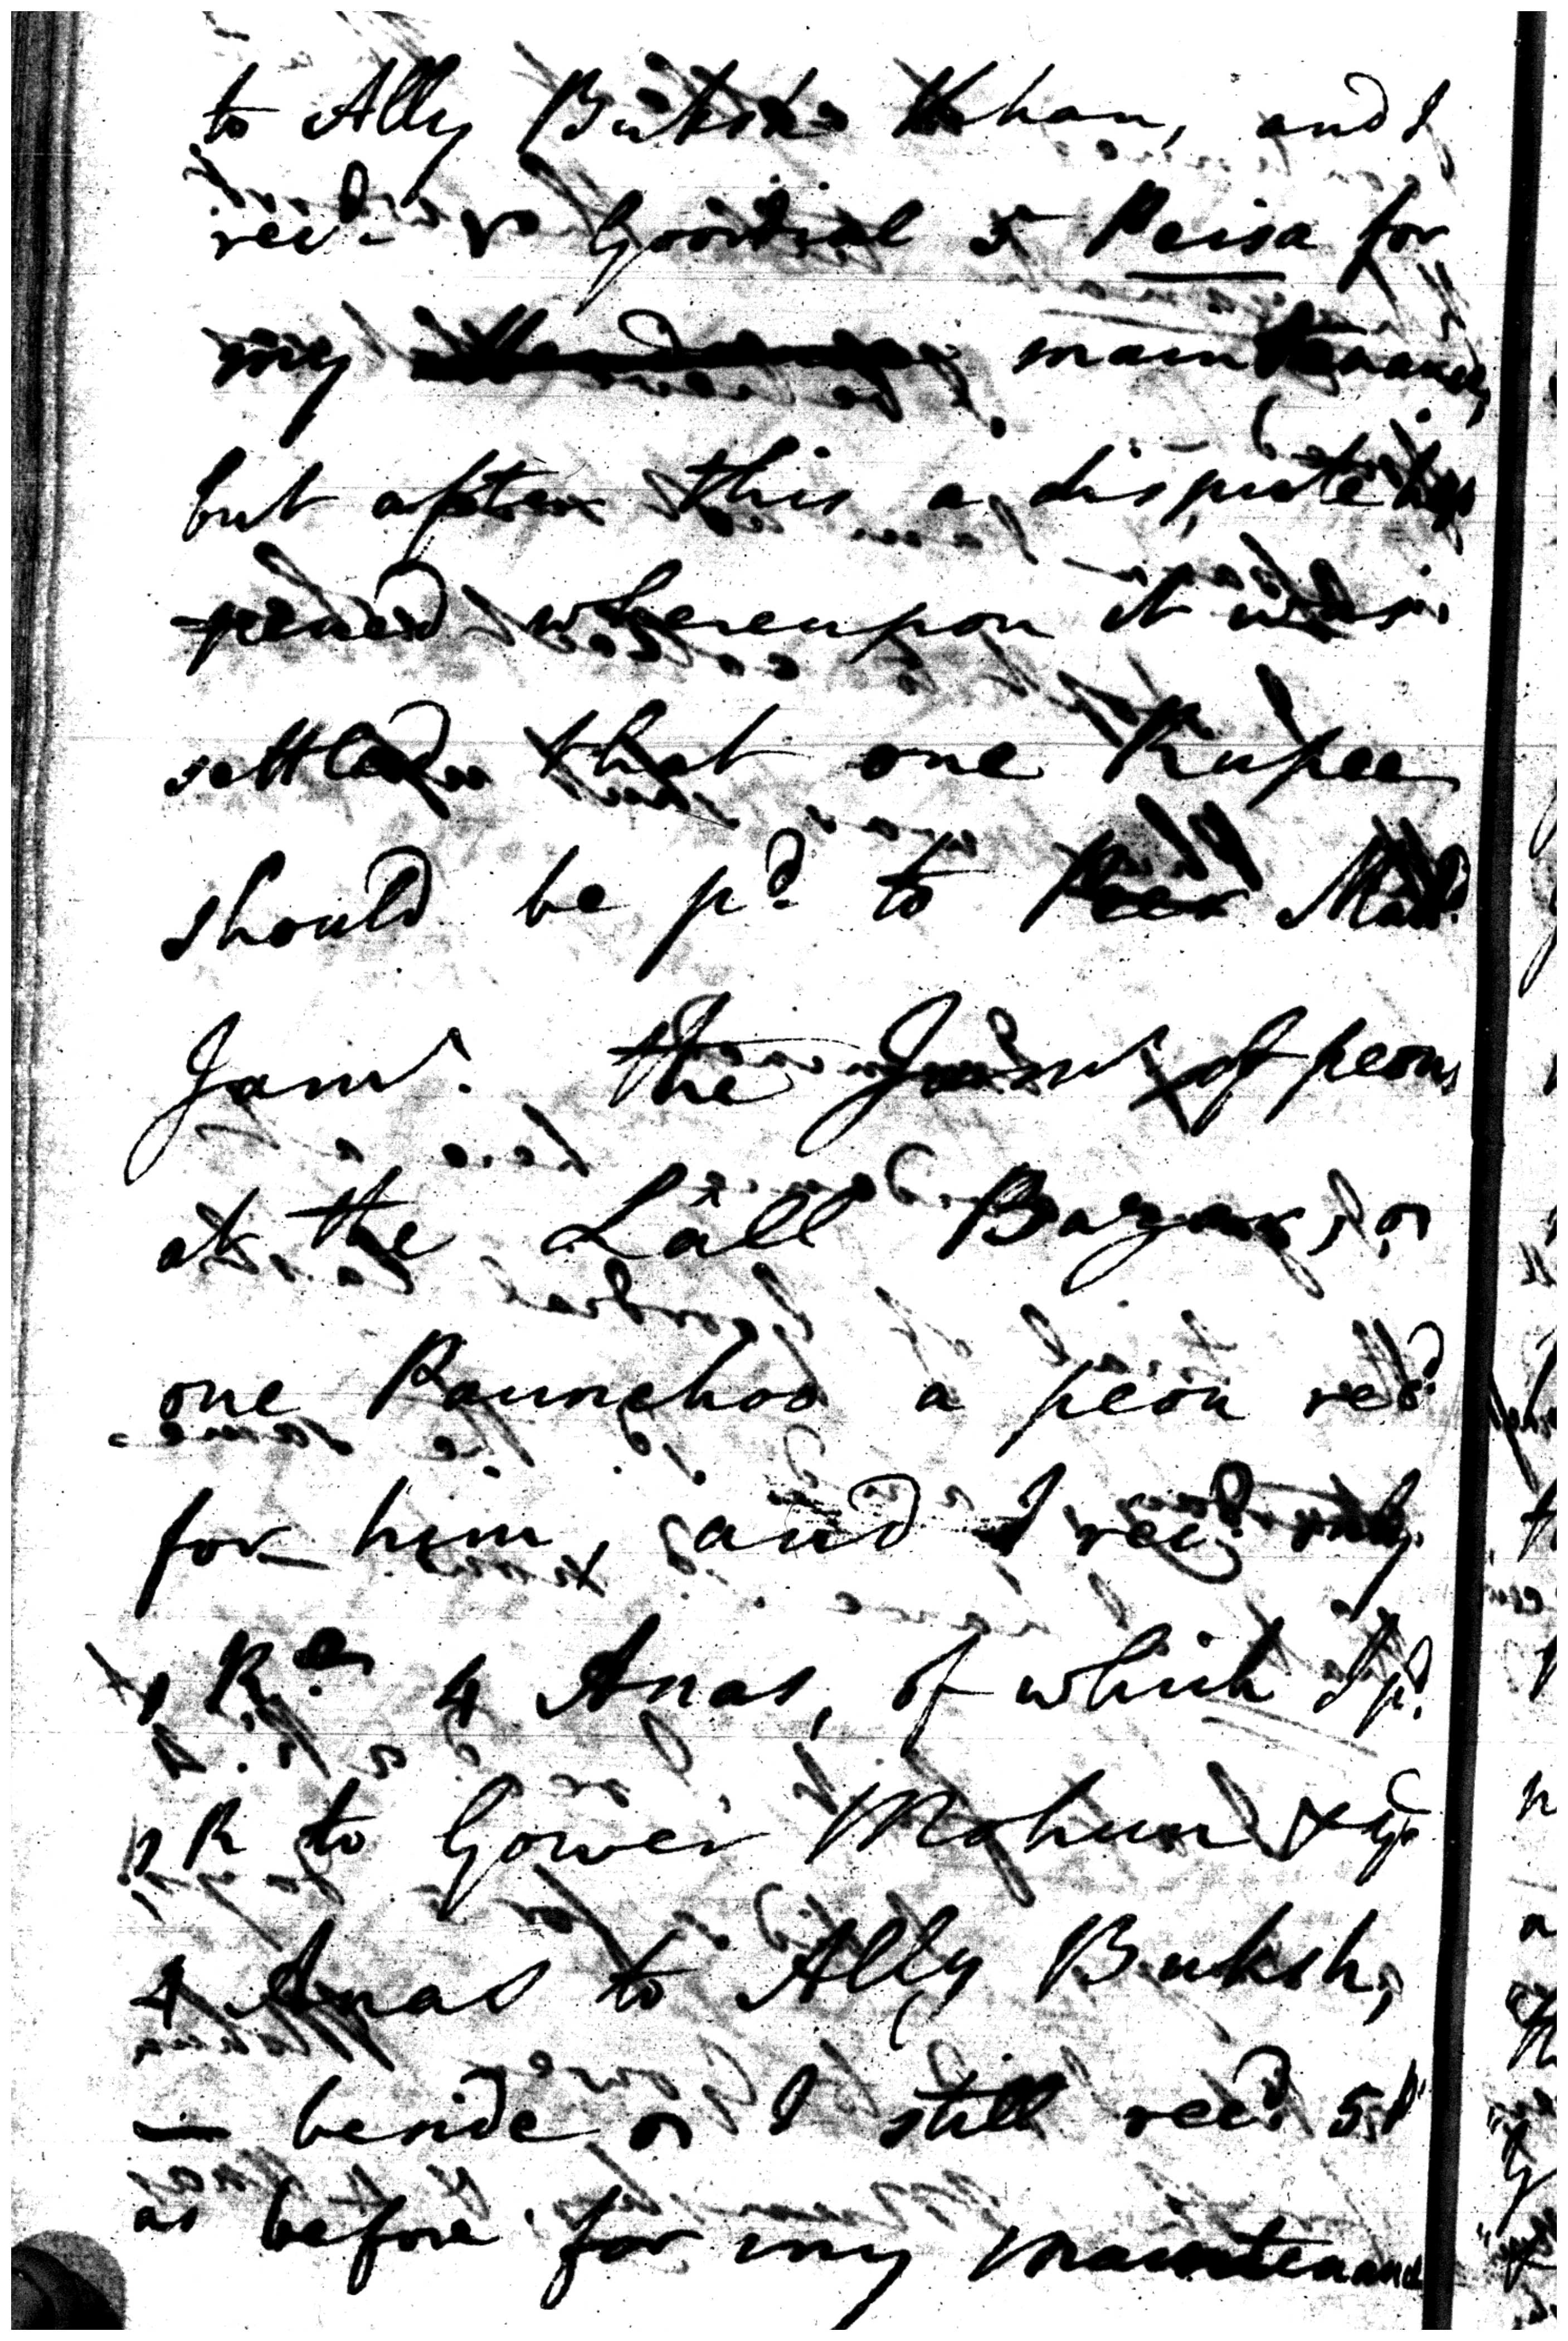 to Ally Buksh Khan, and I
rec.d Goordial 5 Peisa for
my maintenance,
but after this a dispute hap
-pened whereupon it was
settled that one Rupee
should be p.d to Peer Mah.d
Jam.r the Jam.r of peons
at the Lâll Bazar, or
one Raunchod a peon rec.d
for him, and I rec.d only
1 R.e 4 Anas, of which I p.d
1 R to Gower Mohun & ye
4 Anas to Ally Buksh,
— beside I still rec.d 5 P
as before for my maintenance